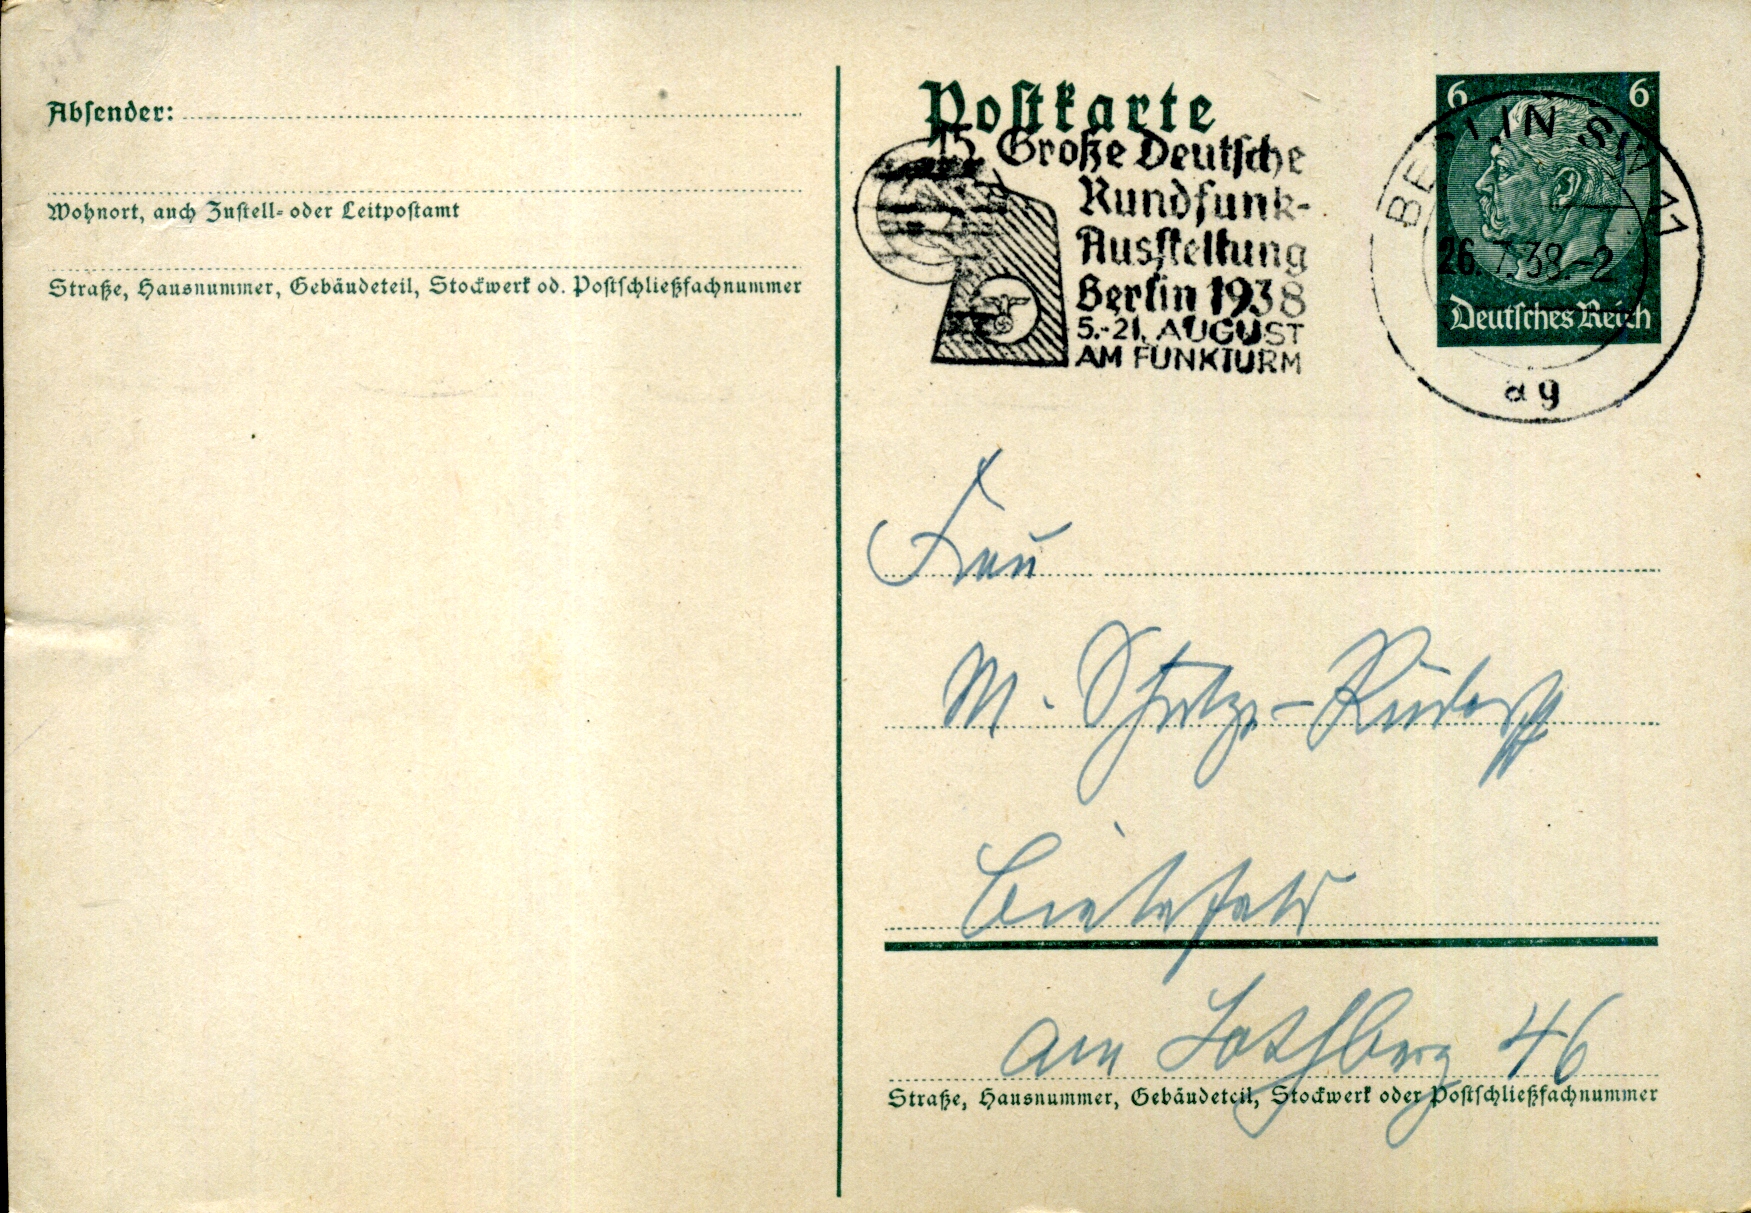 Absender:
Wohnort, auch Zustell- oder Leitpostamt
Straße, Hausnummer, Gebäudeteil, Stockwerk od. Postschließfachnummer
Postkarte
15. Große Deutsche
Rundfunk-
Ausstellung
Berlin 1938
5.-21. AUGUST
AM FUNKTURM
6 6
Deutsches Reich
BERLIN SW 11
26.7.38.-2
ag
Frau
M.
Bielefeld
am 46
Straße, Hausnummer, Gebäudeteil, Stockwerk oder Postschließfachnummer